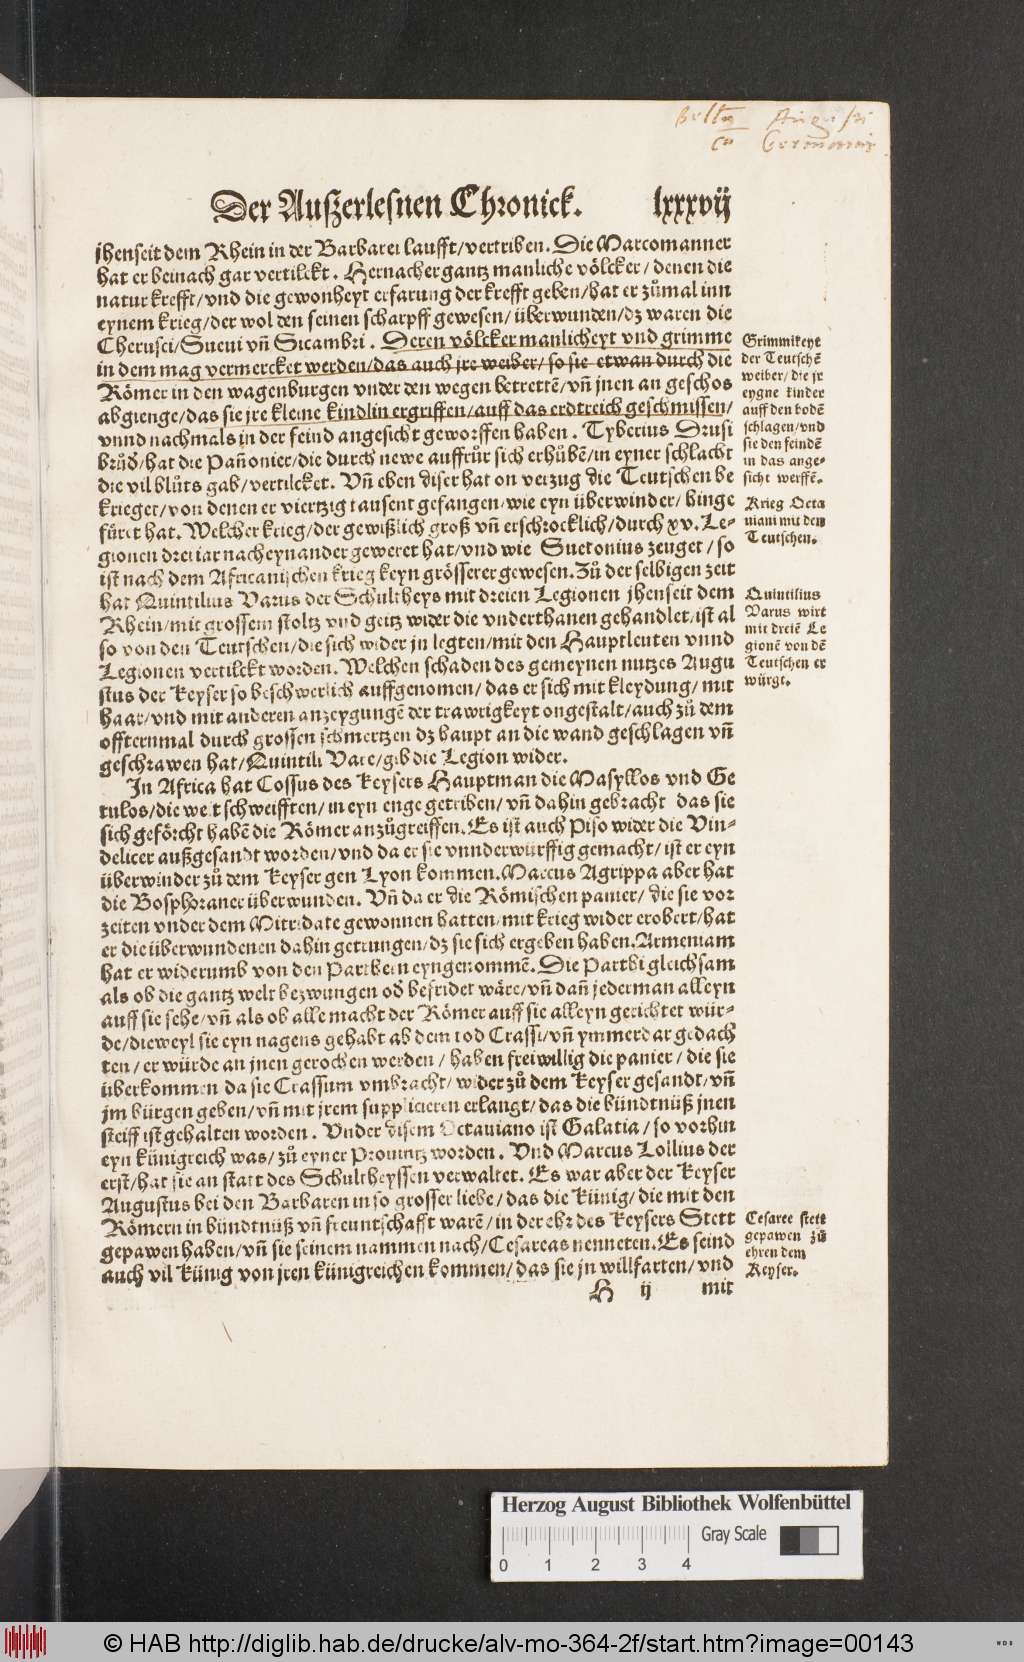 Bellum Augusti
cū Germanis
Der Außerlesnen Chronick. lxxxvij
jhenseit dem Rhein in der Barbarei laufft/vertriben. Die Marcomanner
hat er beinach gar vertilckt. Hernacher gantz manliche völcker/denen die
natur krefft/vnd die gewonheyt erfarung der krefft geben/hat er zůmal inn
eynem krieg/der wol den seinen scharpff gewesen/überwunden/dz waren die
Cherusci/Sueui vñ Sicambri. Deren völcker manlicheyt vnd grimme
in dem mag vermercket werden/das auch jre weiber/so sie etwan durch die
Römer in den wagenburgen vnder den wegen betrettē/vñ jnen an geschos
abgienge/das sie jre kleine kindlin ergriffen/auff das erdtreich geschmissen/
vnnd nachmals in der feind angesicht geworffen haben. Tyberius Drusi
brůd̄/hat die Pañonier/die durch newe auffrůr sich erhůbē/in eyner schlacht
die vil blůts gab/vertilcket. Vñ eben diser hat on verzug die Teutschen be
krieget/von denen er viertzig tausent gefangen/wie eyn überwinder/hinge
füret hat. Welcher krieg/der gewißlich groß vñ erschrocklich/durch xv. Le-
gionen drei iar nacheynander geweret hat/vnd wie Suetonius zeuget/so
ist nach dem Africanischen krieg keyn grösserer gewesen. Zů der selbigen zeit
hat Quintilius Varus der Schultheys mit dreien Legionen jhenseit dem
Rhein/mit grossem stoltz vnd geitz wider die vnderthanen gehandlet/ist al
so von den Teutschen/die sich wider jn legten/mit den Hauptleuten vnnd
Legionen vertilckt worden. Welchen schaden des gemeynen nutzes Augu
stus der Keyser so beschwerlich auffgenomen/das er sich mit kleydung/mit
haar/vnd mit anderen anzeygungē der trawrigkeyt ongestalt/auch zů dem
offternmal durch grossen schmertzen dz haupt an die wand geschlagen vñ
geschrawen hat/Quintili Vare/gib die Legion wider.
In Africa hat Cossus des Keysers Hauptman die Masyllos vnd Ge
tulos/die weit schweifften/in eyn enge getriben/vñ dahin gebracht das sie
sich geförcht habē die Römer anzůgreiffen. Es ist auch Piso wider die Vin-
delicer außgesandt worden/vnd da er sie vnnderwürffig gemacht/ist er eyn
überwinder zů dem Keyser gen Lyon kommen. Marcus Agrippa aber hat
die Bosphoraner überwunden. Vñ da er die Römischen panier/die sie vor
zeiten vnder dem Mitridate gewonnen hatten/mit krieg wider erobert/hat
er die überwundenen dahin getrungen/dz sie sich ergeben haben. Armeniam
hat er widerumb von den Parthern eyngenommē. Die Parthi gleichsam
als ob die gantz welt bezwungen od̄ befridet wäre/vñ dañ jederman alleyn
auff sie sehe/vñ als ob alle macht der Römer auff sie alleyn gerichtet wür-
de/dieweyl sie eyn nagens gehabt ab dem tod Crassi/vñ ymmerdar gedach
ten/er würde an jnen gerochen werden/haben freiwillig die panier/die sie
überkommen da sie Crassum vmbracht/wider zů dem Keyser gesandt/vñ
jm bürgen geben/vñ mit jrem supplicieren erlangt/das die bündtnüß jnen
steiff ist gehalten worden. Vnder disem Octauiano ist Galatia/so vorhin
eyn künigreich was/zů eyner Prouintz worden. Vnd Marcus Lollius der
erst/hat sie an statt des Schultheyssen verwaltet. Es war aber der Keyser
Augustus bei den Barbaren in so grosser liebe/das die Künig/die mit den
Römern in bündtnüß vñ freuntschafft warē/in der ehr des Keysers Stett
gepawen haben/vñ sie seinem nammen nach/Cesareas nenneten. Es seind
auch vil Künig von jren künigreichen kommen/das sie jn willfarten/vnd
H ij mit
Grimmikeyt
der Teutschē
weiber/die jr
eygne kinder
auff den bodē
schlagen/vnd
sie den feindē
in das ange-
sicht werffē.
Krieg Octa
uiani mit den
Teutschen.
Quintilius
Varus wirt
mit dreiē Le
gionē von dē
Teutschen er
würgt.
Cesaree stett
gepawen zů
ehren dem
Keyser.
Herzog August Bibliothek Wolfenbüttel
Gray Scale
0 1 2 3 4
© HAB http://diglib.hab.de/drucke/alv-mo-364-2f/start.htm?image=00143